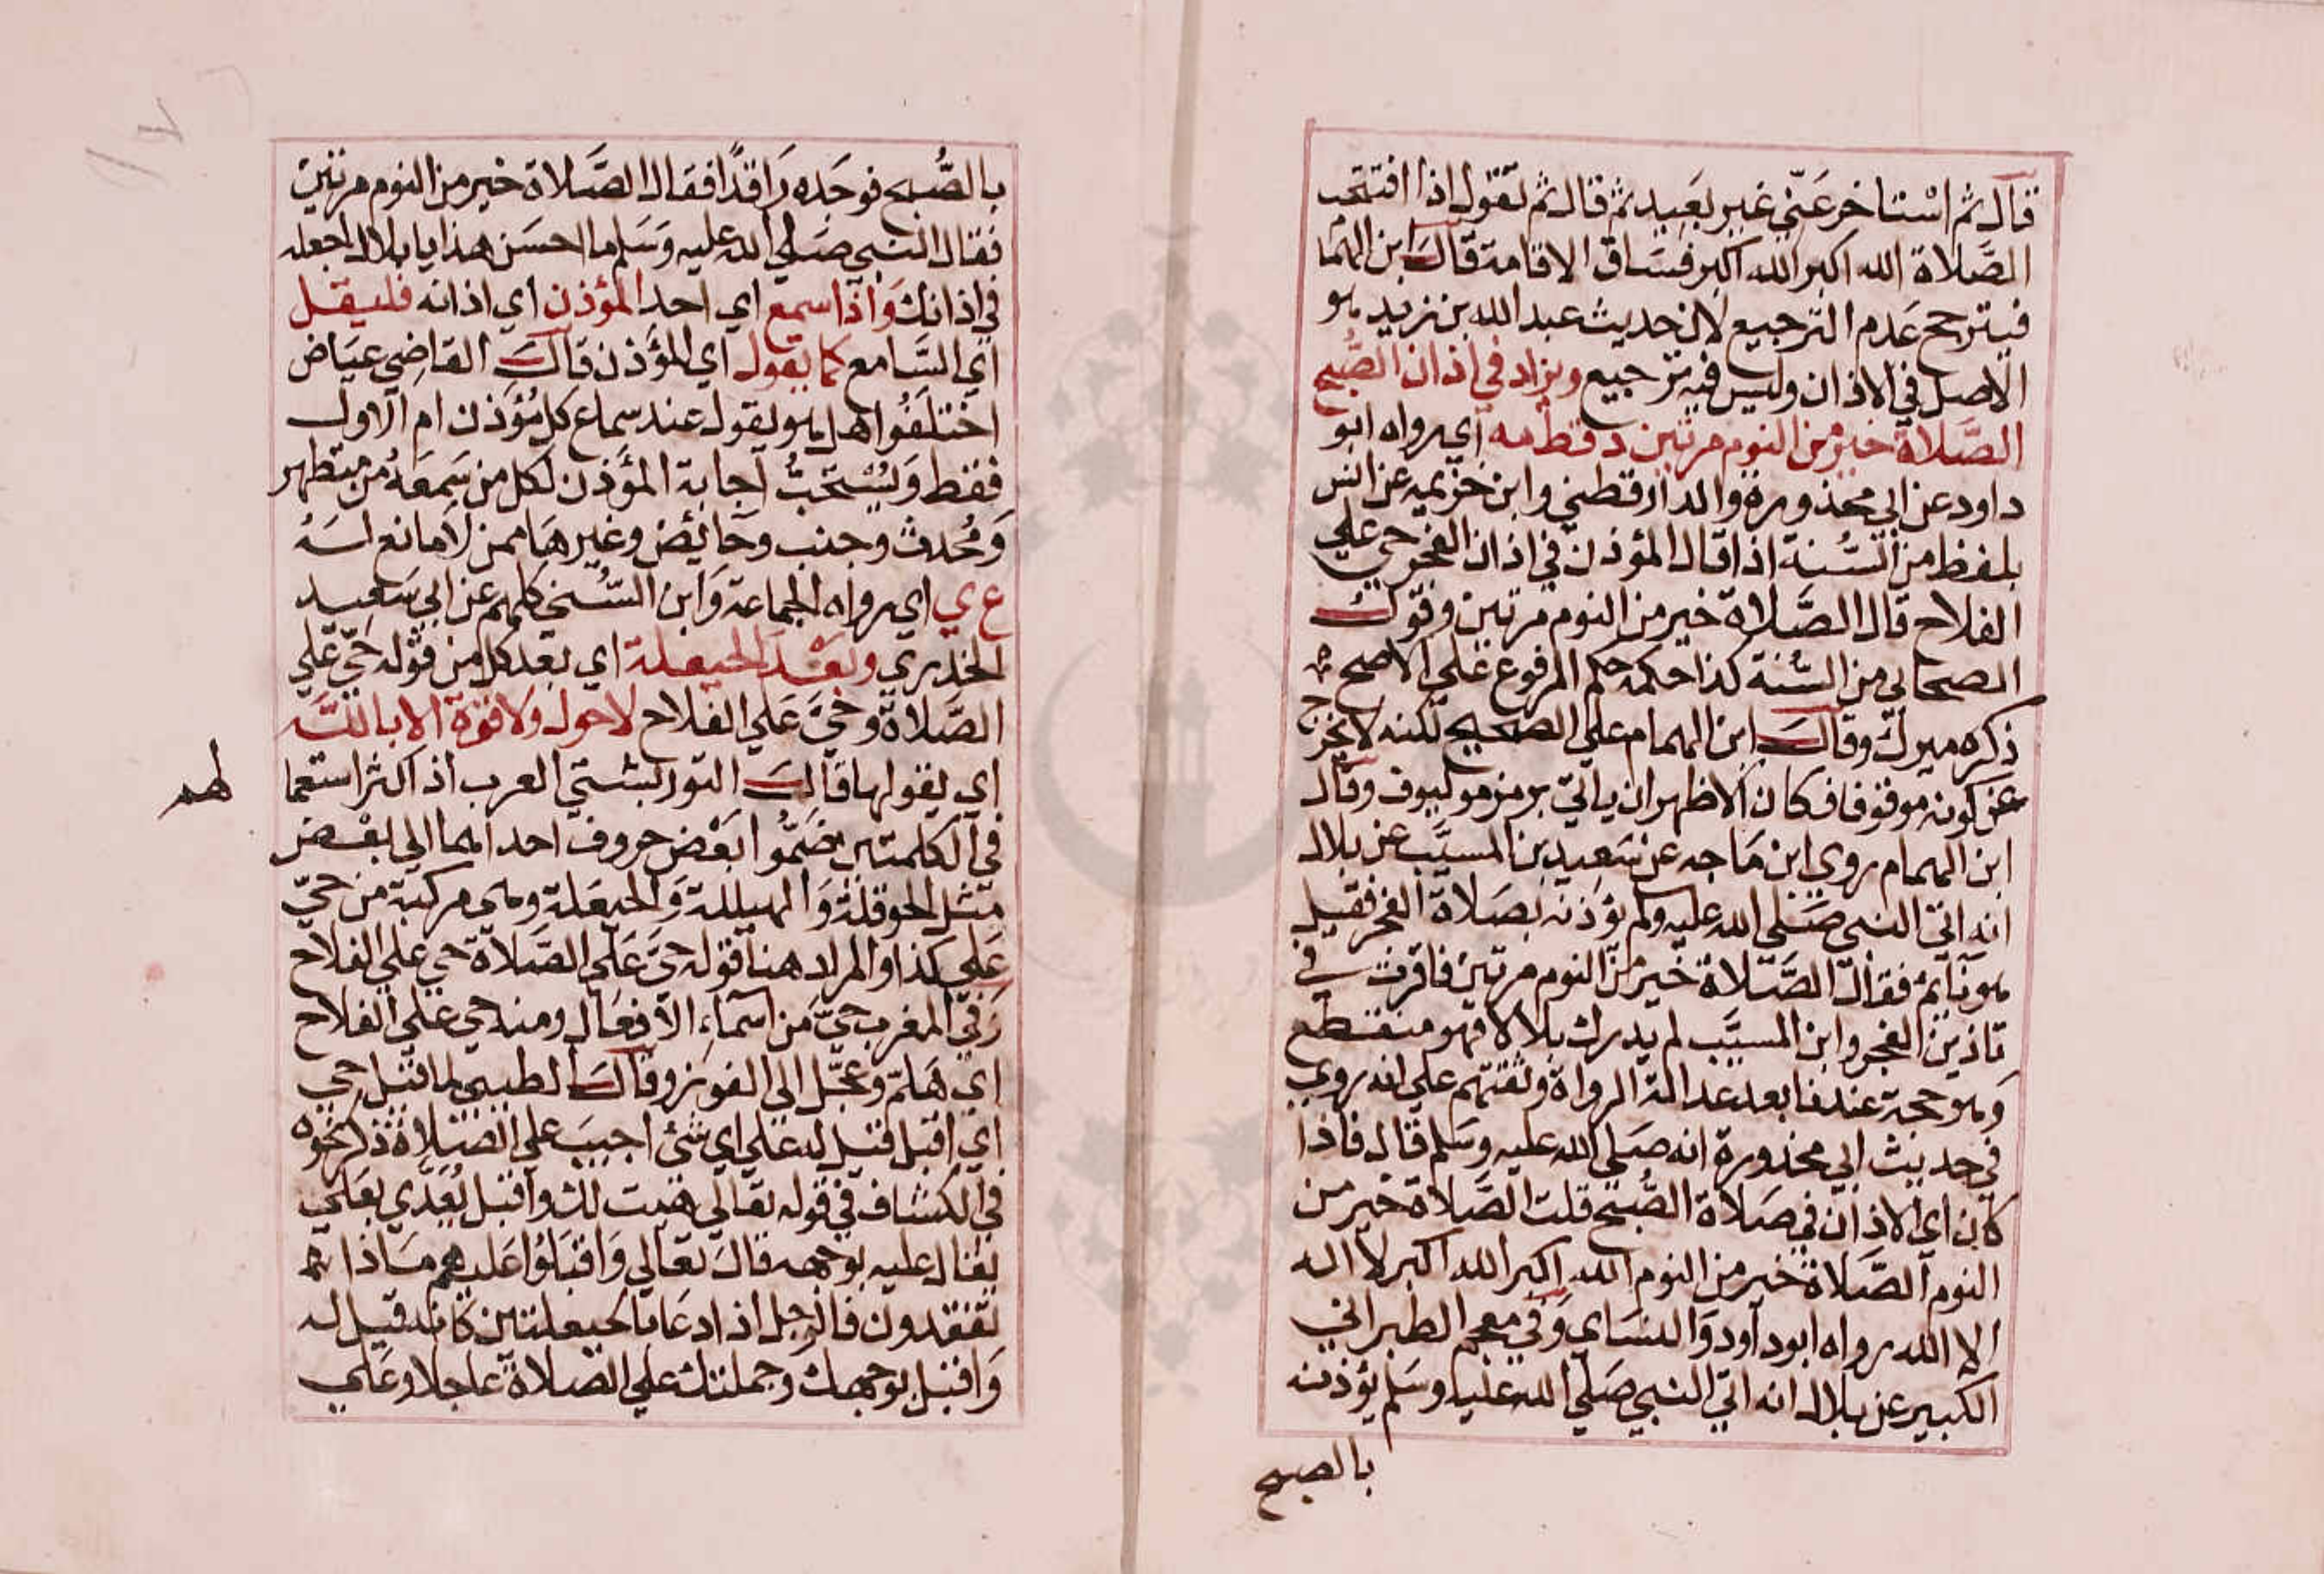 قال ثم استاخر عني غير بعيد ثم قال ثم تقول اذا افتتحت
الصلاة الله اكبر الله اكبر فساق الاقامة قال ابن الهما
فيترجح عدم الترجيع لان حديث عبد الله بن زيد هو
الاصل في الاذان وليس فيه ترجيع ويزاد في اذان الصبح
الصلاة خير من النوم مرتين د قط مه اي رواه ابو
داود عن ابي محذورة والدارقطني وابن خزيمه عن انس
بلفظ من السنة اذا قال المؤذن في اذان الفجر حي علي
الفلاح قال الصلاة خير من النوم مرتين وقول
الصحابي من السنة كذا حكمه حكم المرفوع علي الاصح
ذكره ميرك وقال ابن الهمام علي الصحيح لكنه لا يخرج
عن كونه موقوفا فكان الاظهر ان ياتي برمز موليوف وقال
ابن الهمام روي ابن ماجه عن سعيد بن المسيب عن بلال
انه اتي النبي صلي الله عليه ولم يؤذنه بصلاة الفجر فقيل
هو نايم فقال الصلاة خير من النوم مرتين فاقرت في
تاذين الفجر وابن المسيب لم يدرك بلالا فهو منقطع
وهو حجة عندنا بعد عدالة الرواة وثقتهم علي انه روي
في حديث ابي محذورة انه صلي الله عليه وسلم قال فاذا
كان اي الاذان في صلاة الصبح قلت الصلاة خير من
النوم الصلاة خير من النوم الله اكبر الله اكبر لا اله
الا الله رواه ابو داود والنساي وفي معجم الطبراني
الكبير عن بلال انه اتي النبي صلي الله عليه وسلم يؤذنه
بالصبح
بالصُّبح فوجَده رَاقدًا فقال الصَّلاة خير من النوم مرتين
فقال النبي صلي الله عليه وسلم ما احسن هذا يا بلال اجعله
في اذانك وَاذا سمع اي احد المؤذن اي اذانه فليقل
اي السامع كما يقول اي المؤذن قال القاضي عياض
اختلفوا هل هو يقول عند سماع كل مُؤَذن ام الاول
فقط وَيُسْتَحَبُّ اجابة المؤذن لكل من سَمعَهُ من متطهر
وَمُحْدث وجنب وحايض وغير هما ممن لا مانع لَهُ
ع ي اي رواه الجماعة وَابن السُّني كلهم عن ابي سعيد
الخدري وبعد الحيعلة اي بعد كل من قوله حيّ علي
الصَّلاة وحيَّ عَلي الفلاح لا حول ولا قوة الا بالله
اي يقولها قال التوربشتي العرب اذ اكثر استعما
لهم
في الكلمتين ضَمُّوا بَعْض حروف احداهما الي بعْض
مثل الحوقلة وَالهيللة وَالحيعَلة وهي مركبة من حيّ
عَلي كذا والمراد هنا قوله حيَّ عَلي الصَّلاة حي علي الفلاح
وَفي المغرب حيّ من اسماء الافعَال ومنه حي علي الفلاح
اي هَلمّ وعجّل الي الفوز وقال الطيبي لما قيل حي
اي اقبل قيل له علي اي شئ اجيبَ علي الصلاة ذكر نحوه
في الكشاف في قوله تعالي هيت لك واقبل يُعَدَّي بعَلي
يقال عليه بوجهه قال تعالي وَاقبَلوُا عَليهم ماذا
تفقدون فالرجل اذا دعا بالحيعلتين كانه قيل له
وَاقبل بوجهك وجملتك علي الصلاة عاجلا وعلي